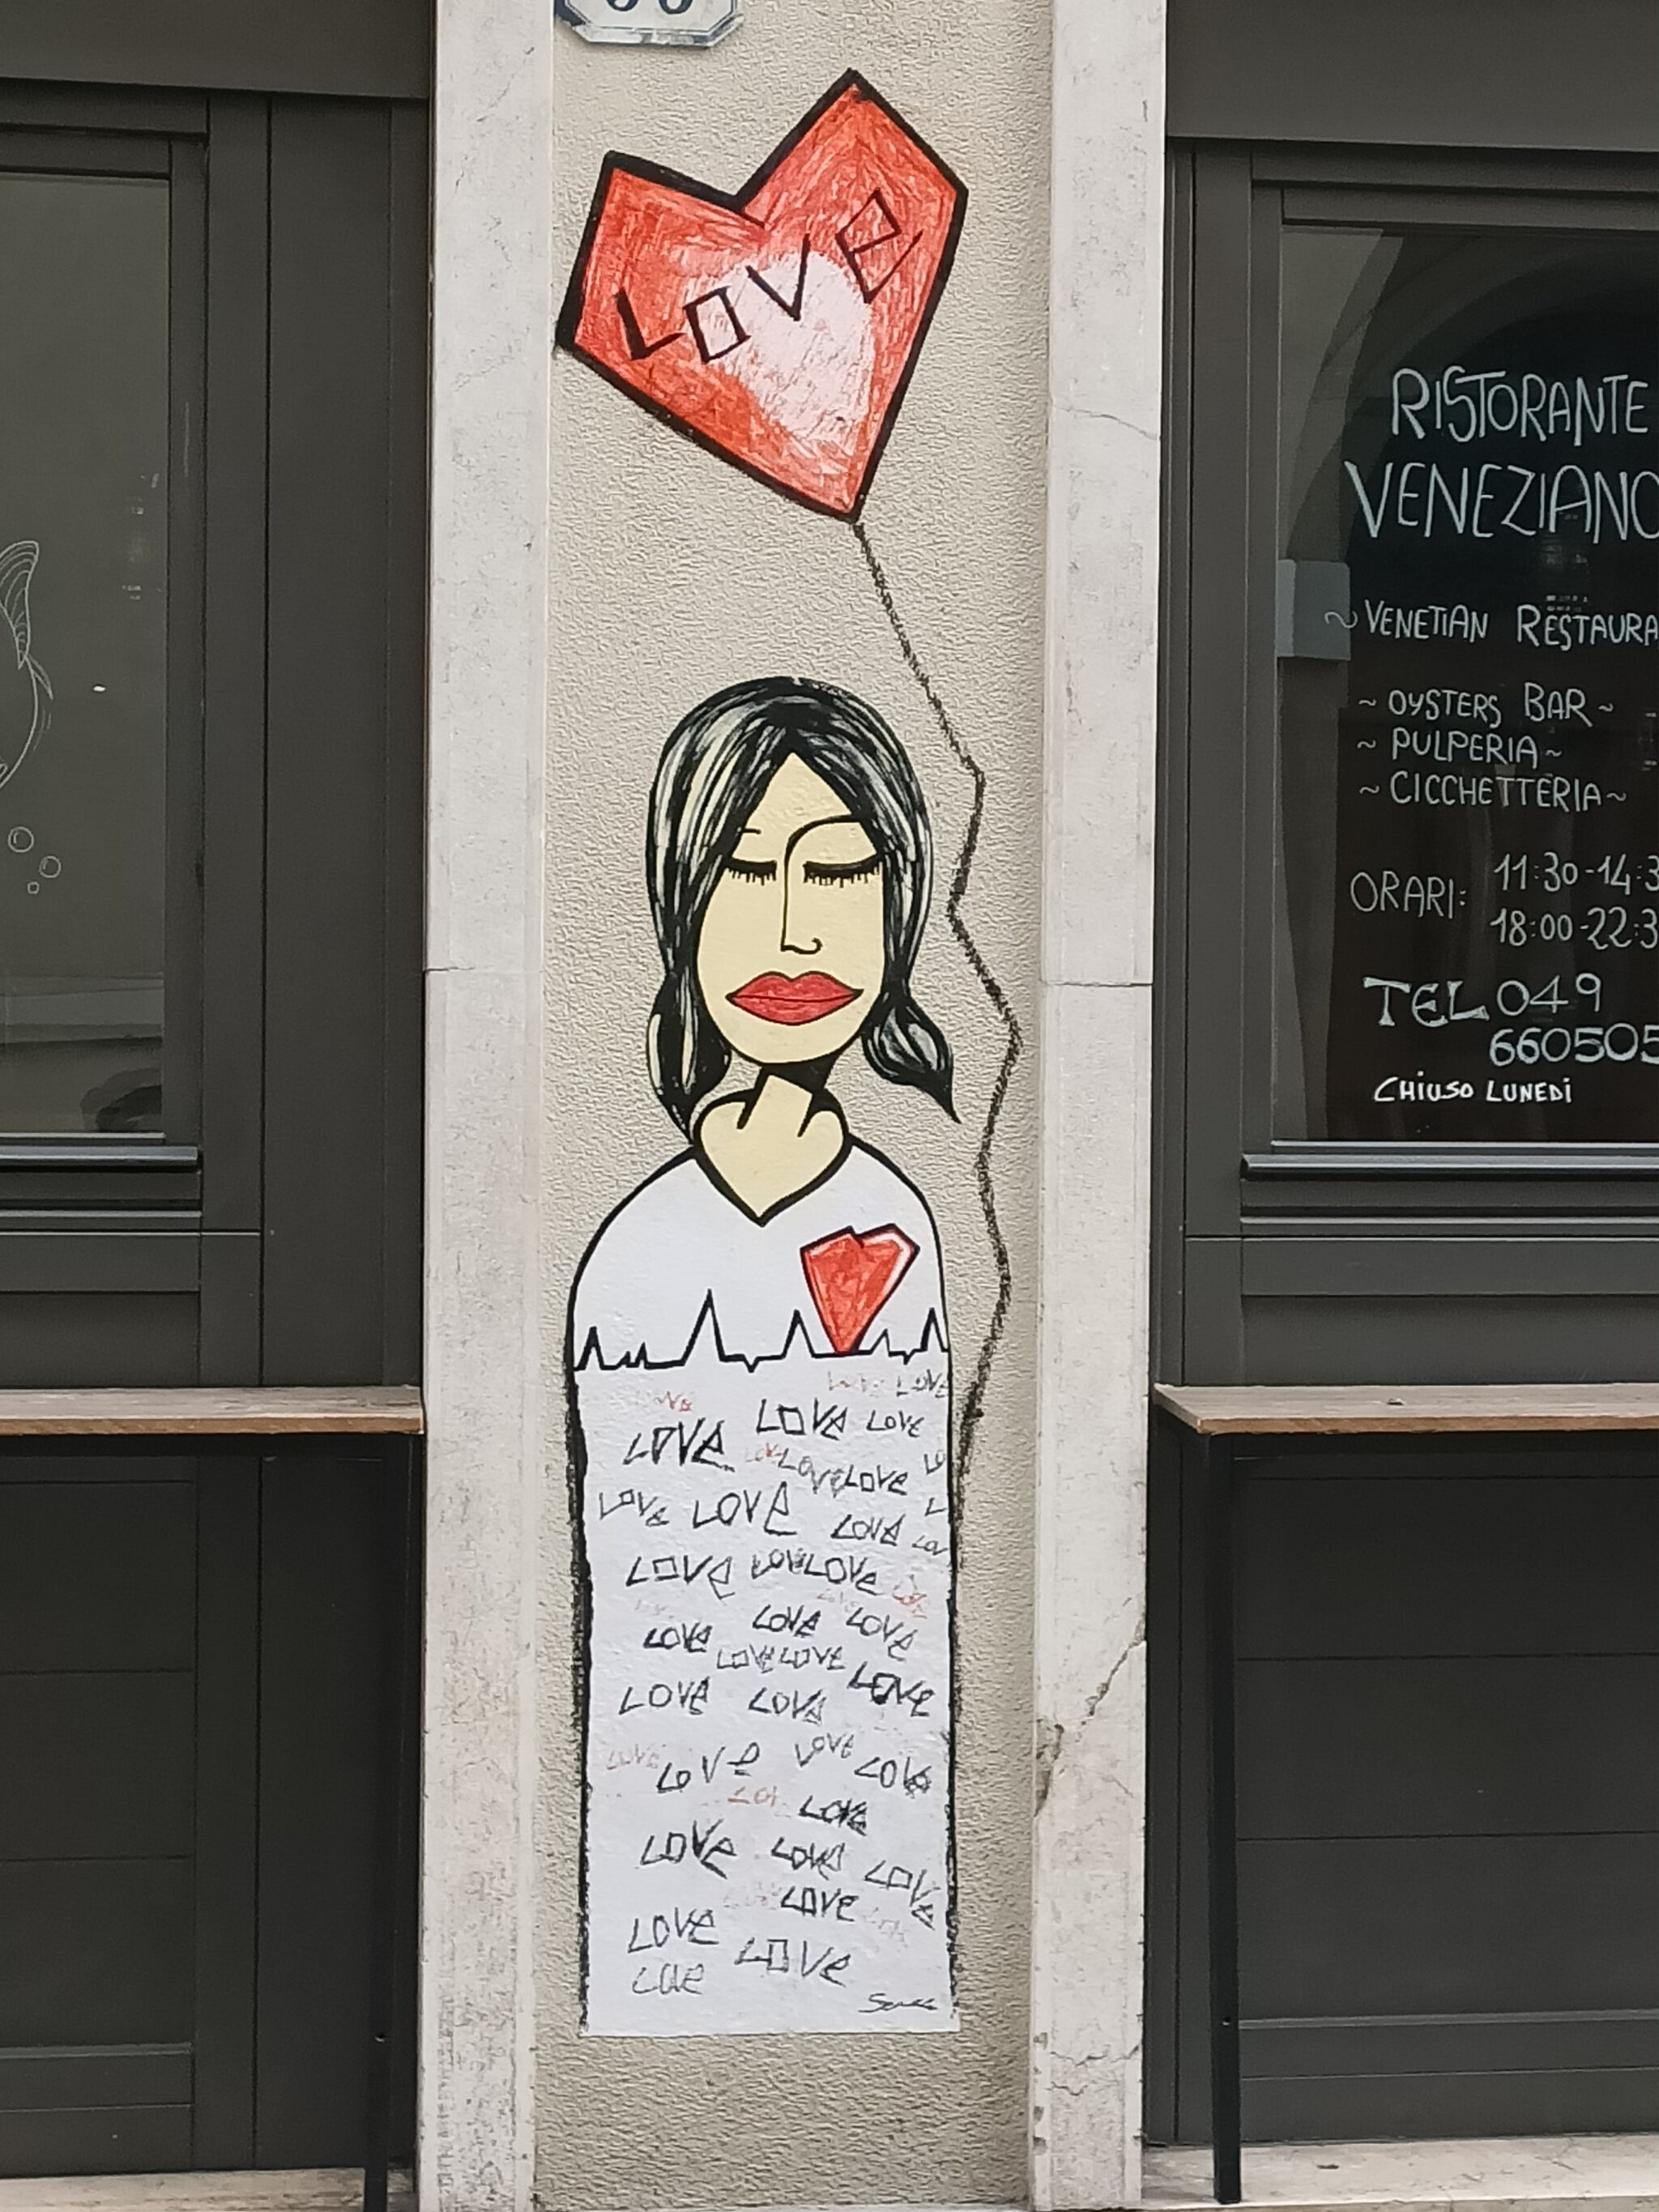 LOVE
RISTORANTE
VENEZIANO
~ VENETIAN RESTAURA
~ OYSTERS BAR ~
~ PULPERIA ~
~ CICCHETTERIA ~
ORARI: 11:30-14:3
18:00-22:3
TEL 049
660505
CHIUSO LUNEDI
LOVE
LOVE LOVE
LOVE
LOVE LOVE
LOVE LOVE
LOVE
LOVE LOVE LOVE
LOVE LOVE
LOVE
LOVE LOVE
LOVE
LOVE LOVE
LOVE
LOVE LOVE
LOVE LOVE
LOVE
LOVE LOVE
LOVE
LOVE
LOVE
LOVE